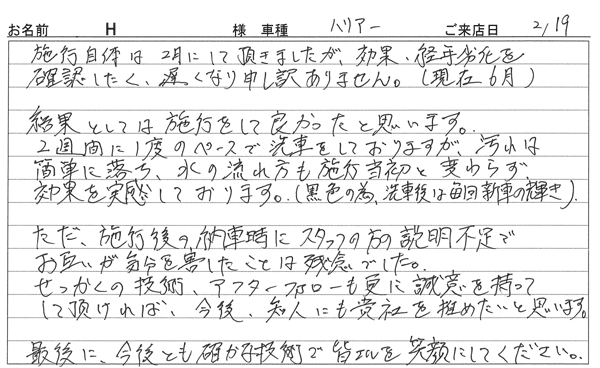 お名前 H 様 車種 ハリアー ご来店日 2/19
施行自体は2月にして頂きましたが、効果、経年劣化を
確認したく、遅くなり申し訳ありません。(現在6月)
結果としては施行をして良かったと思います。
2週間に1度のペースで洗車をしておりますが、汚れは
簡単に落ち、水の流れ方も施行当初と変わらず、
効果を実感しております。(黒色の為、洗車後は毎回新車の輝き)
ただ、施行後の納車時にスタッフの方の説明不足で
お互いが気分を害したことは残念でした。
せっかくの技術、アフターフォローも更に誠意を持って
して頂ければ、今後、知人にも貴社を推めたいと思います。
最後に、今後とも確かな技術で皆さんを笑顔にしてください。